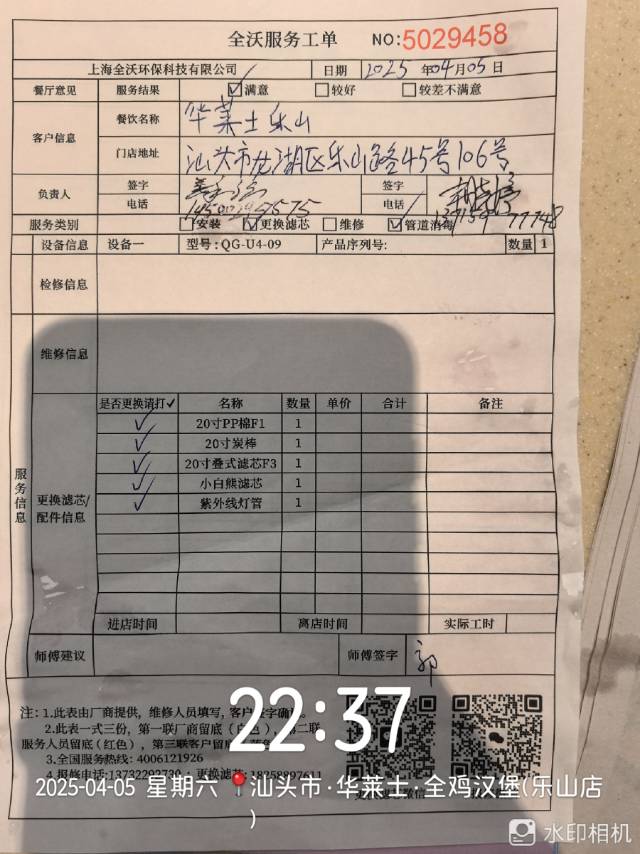 全沃服务工单 NO:5029458
上海全沃环保科技有限公司 日期 2025年04月05日
餐厅意见 服务结果 ☑满意 □较好 □较差不满意
客户信息 餐饮名称 华莱士乐山
门店地址 汕头市龙湖区乐山路45号106号
负责人 签字 签字
电话 电话
服务类别 □安装 ☑更换滤芯 □维修 ☑管道消毒
设备信息 设备一 型号:QG-U4-09 产品序列号: 数量 1
检修信息
维修信息
服务信息
更换滤芯/配件信息
是否更换请打✓ 名称 数量 单价 合计 备注
✓ 20寸PP棉F1 1
✓ 20寸炭棒 1
✓ 20寸叠式滤芯F3 1
✓ 小白熊滤芯 1
✓ 紫外线灯管 1
进店时间 离店时间 实际工时
师傅建议 师傅签字 郭
注:1.此表由厂商提供,维修人员填写,客户签字确认。
2.此表一式三份,第一联厂商留底(白色),第二联
服务人员留底(红色),第三联客户留底
3.全国服务热线:4006121926
4.报修电话:13732292730 更换滤芯:18258897611
22:37
2025-04-05 星期六 汕头市·华莱士·全鸡汉堡(乐山店
)
水印相机